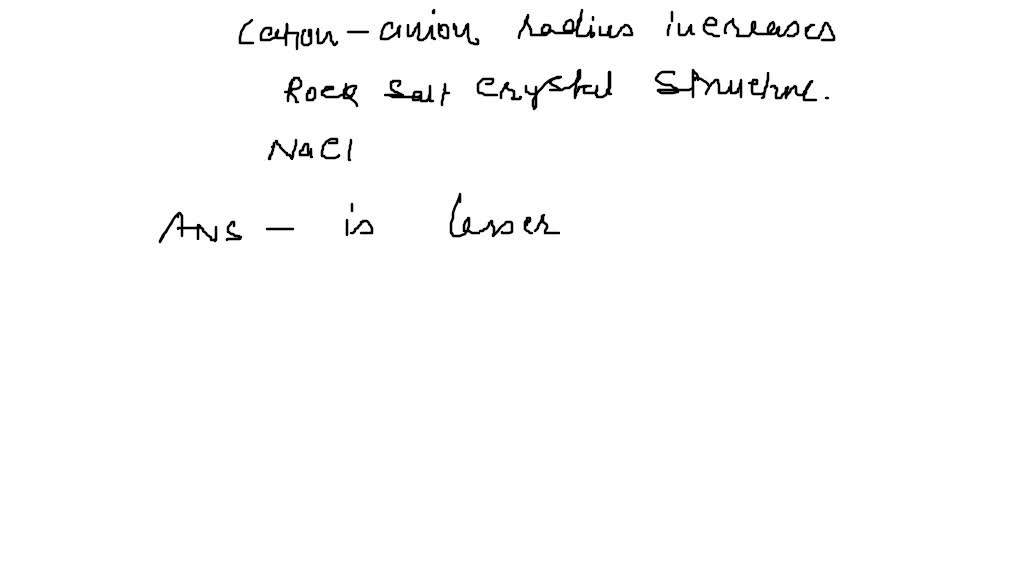 Cation - anion radius increases
Rock salt crystal structure.
NaCl
Ans - is lesser